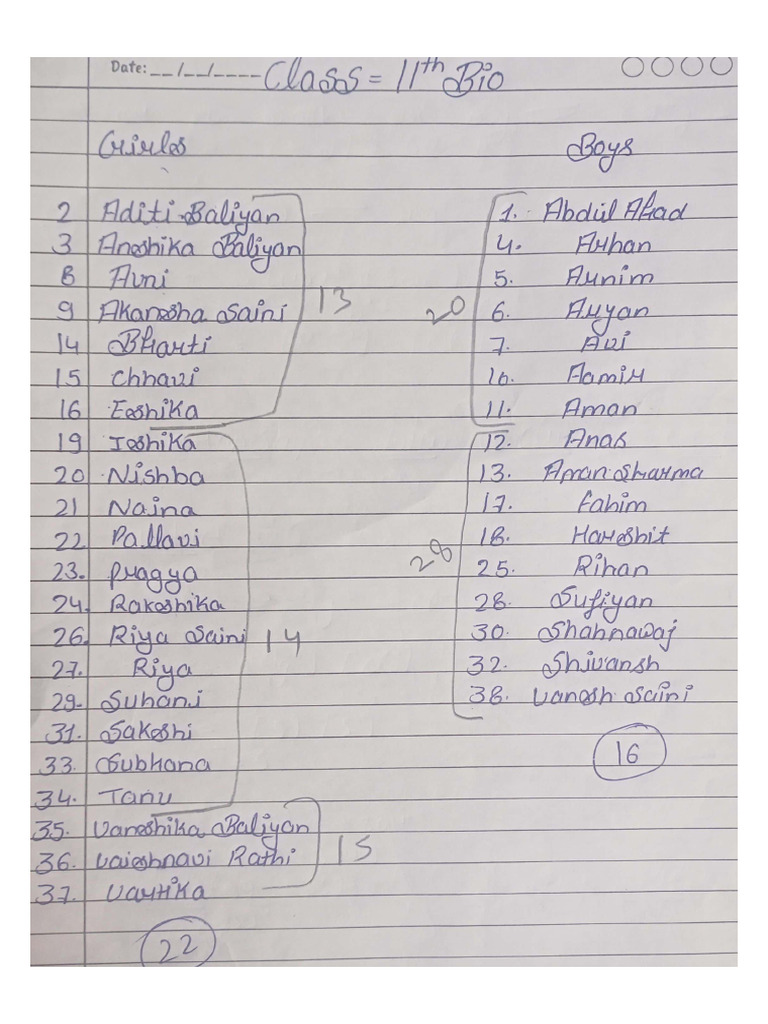 Date: __/__/____ Class = 11th Bio
Girles
2 Aditi Baliyan
3 Anshika Baliyan
8 Avni
9 Akansha Saini
14 Bharti
15 Chhavi
16 Eshika
13
19 Ishika
20 Nishba
21 Naina
22 Pallavi
23. Pragya
24. Rakshika
26. Riya Saini
27. Riya
29. Suhani
31. Sakshi
33. Subhana
34. Tanu
14
35. Vanshika Baliyan
36. Vaishnavi Rathi
37. Vartika
15
22
Boys
1. Abdul Ahad
4. Arhan
5. Arnim
6. Aryan
7. Avi
10. Aamir
11. Aman
20
12. Anas
13. Aman Sharma
17. Fahim
18. Harshit
25. Rihan
28. Sufiyan
30. Shahnawaj
32. Shivansh
38. Vansh Saini
28
16